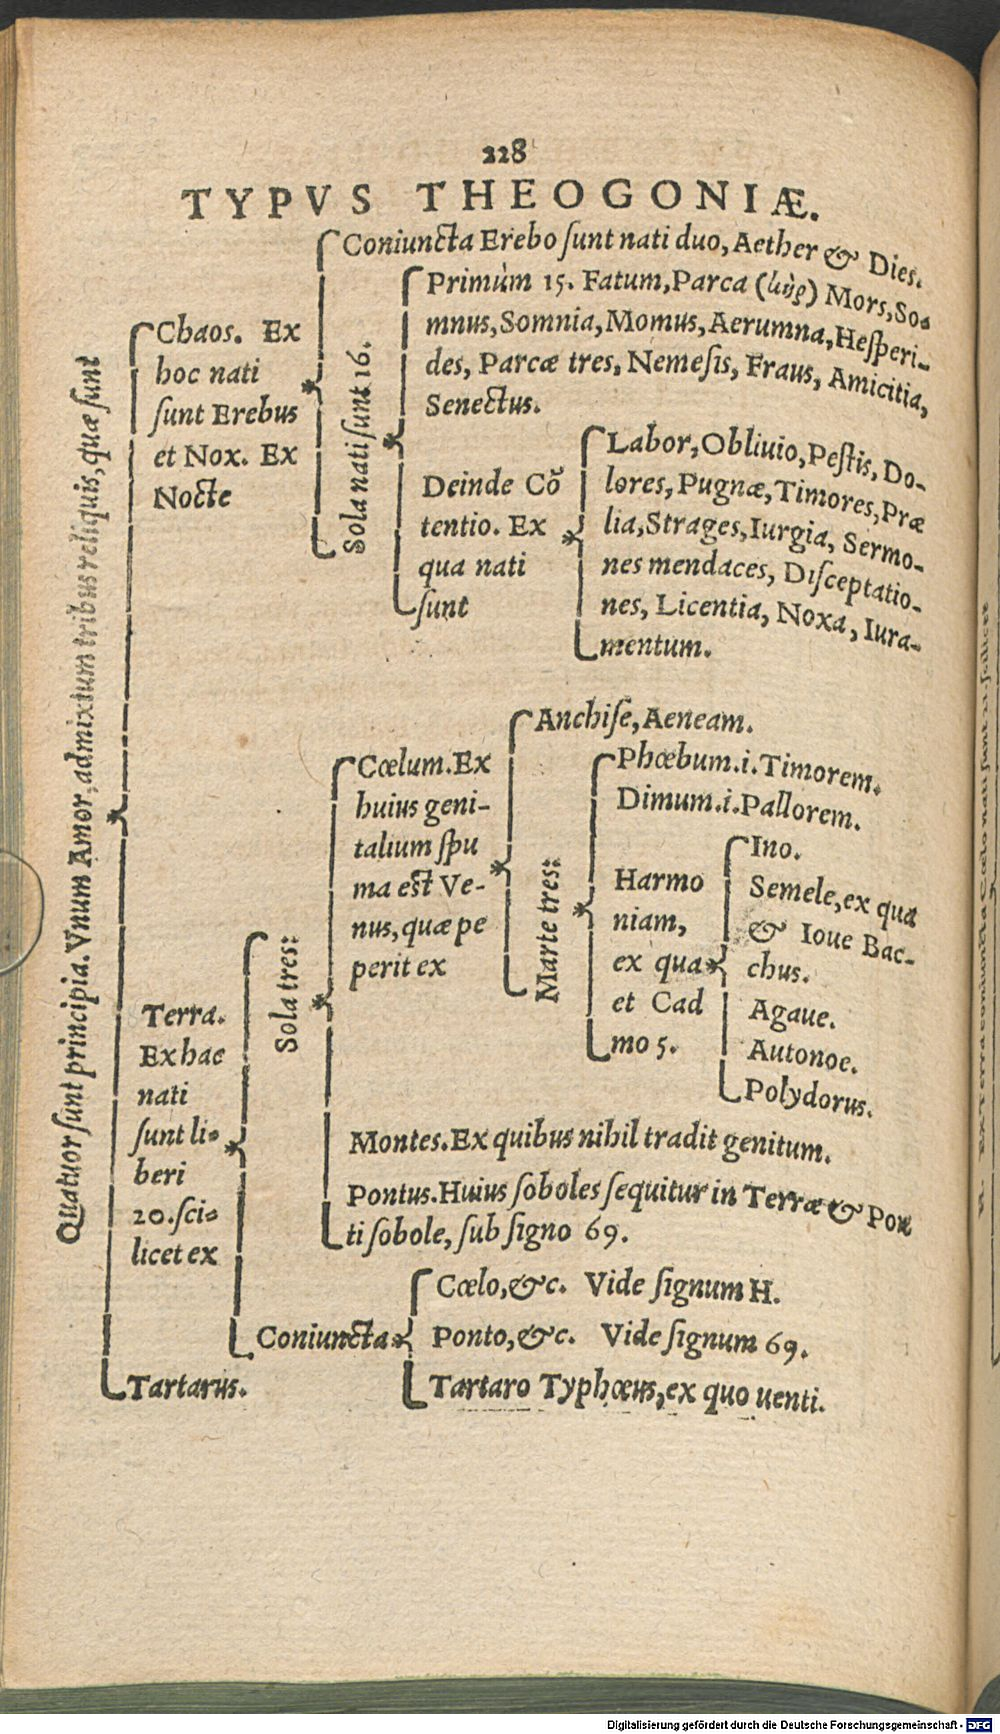 228
TYPVS THEOGONIÆ.
Quatuor sunt principia. Vnum Amor, admixtum tribus reliquis, quæ sunt
Chaos. Ex
hoc nati
sunt Erebus
et Nox. Ex
Nocte
Coniuncta Erebo sunt nati duo, Aether & Dies.
Sola nati sunt 16.
Primùm 15. Fatum, Parca (κὴρ) Mors, So-
mnus, Somnia, Momus, Aerumna, Hesperi-
des, Parcæ tres, Nemesis, Fraus, Amicitia,
Senectus.
Deinde Cõ
tentio. Ex
qua nati
sunt
Labor, Obliuio, Pestis, Do-
lores, Pugnæ, Timores, Præ
lia, Strages, Iurgia, Sermo-
nes mendaces, Disceptatio-
nes, Licentia, Noxa, Iura-
mentum.
Terra.
Ex hac
nati
sunt li-
beri
20. sci-
licet ex
Sola tres:
Cœlum. Ex
huius geni-
talium spu
ma est Ve-
nus, quæ pe
perit ex
Anchise, Aeneam.
Marte tres:
Phœbum .i. Timorem.
Dimum .i. Pallorem.
Harmo
niam,
ex qua
et Cad
mo 5.
Ino.
Semele, ex qua
& Ioue Bac-
chus.
Agaue.
Autonoe.
Polydorus.
Montes. Ex quibus nihil tradit genitum.
Pontus. Huius soboles sequitur in Terræ & Pon
ti sobole, sub signo 69.
Coniuncta
Cœlo, &c. Vide signum H.
Ponto, &c. Vide signum 69.
Tartaro Typhœus, ex quo uenti.
Tartarus.
H. Ex Terra coniuncta Cœlo nati sunt
Digitalisierung gefördert durch die Deutsche Forschungsgemeinschaft - DFG